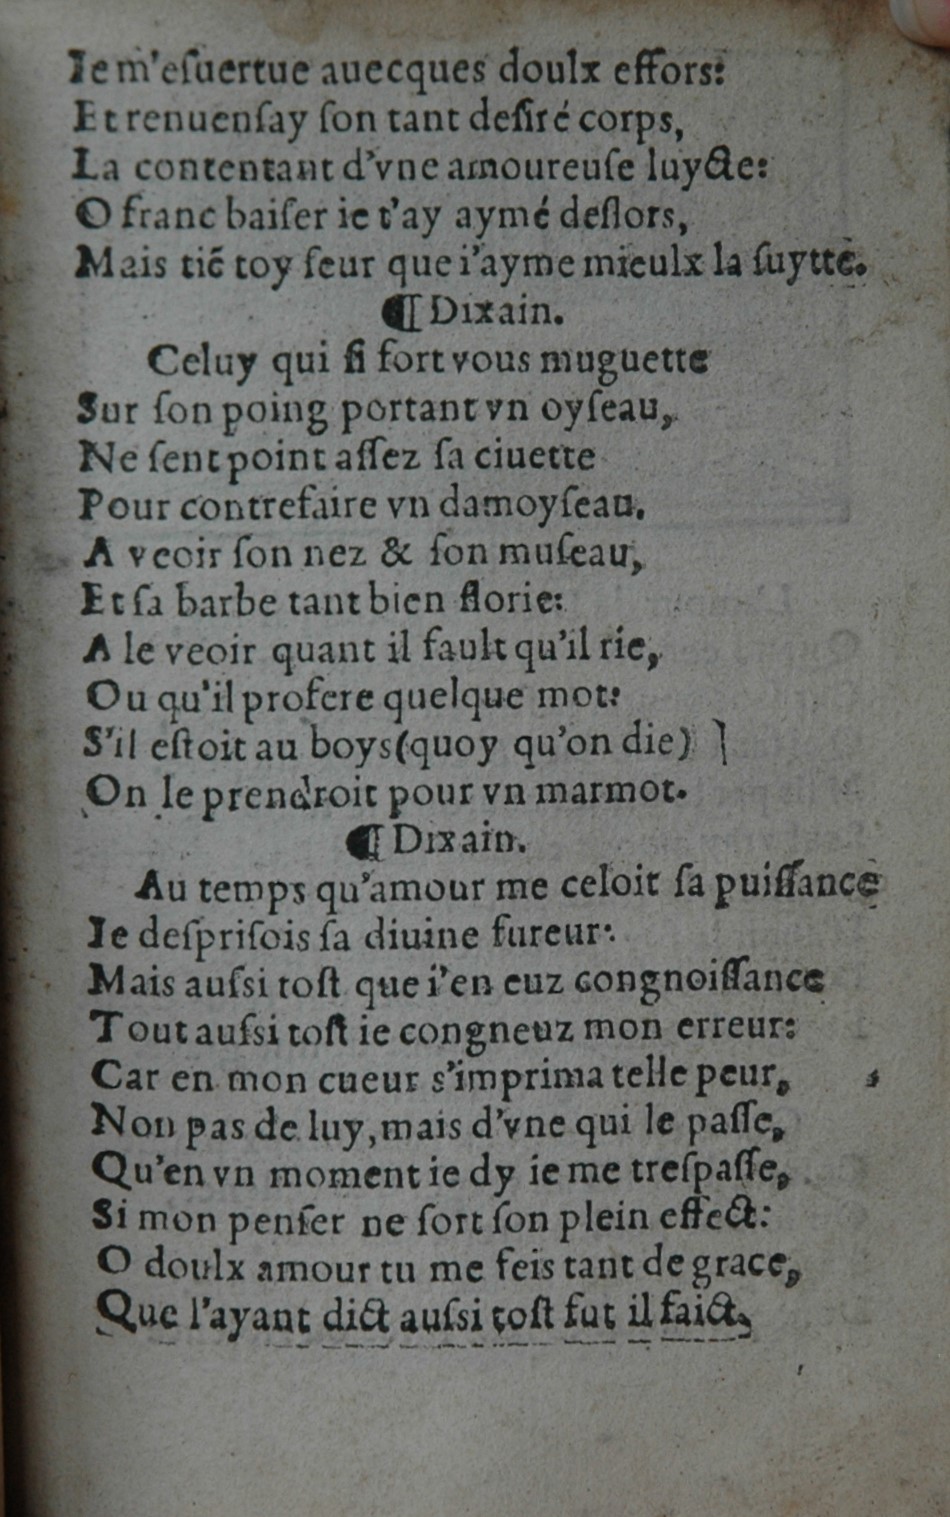 Ie m'eſuertue auecques doulx effors:
Et renuenſay ſon tant deſiré corps,
La contentant d'vne amoureuſe luycte:
O franc baiſer ie t'ay aymé deſlors,
Mais tiẽ toy ſeur que i'ayme mieulx la ſuytte.
¶ Dixain.
Celuy qui ſi fort vous muguette
Sur ſon poing portant vn oyſeau,
Ne ſent point aſſez ſa ciuette
Pour contrefaire vn damoyſeau.
A veoir ſon nez & ſon muſeau,
Et ſa barbe tant bien florie:
A le veoir quant il fault qu'il rie,
Ou qu'il profere quelque mot:
S'il eſtoit au boys(quoy qu'on die)
On le prendroit pour vn marmot.
¶ Dixain.
Au temps qu'amour me celoit ſa puiſſance
Ie deſpriſois ſa diuine fureur:
Mais auſsi toſt que i'en euz congnoiſſance
Tout auſsi toſt ie congneuz mon erreur:
Car en mon cueur s'imprima telle peur,
Non pas de luy,mais d'vne qui le paſſe,
Qu'en vn moment ie dy ie me treſpaſſe,
Si mon penſer ne ſort ſon plein effect:
O doulx amour tu me feis tant de grace,
Que l'ayant dict auſsi toſt fut il faict,